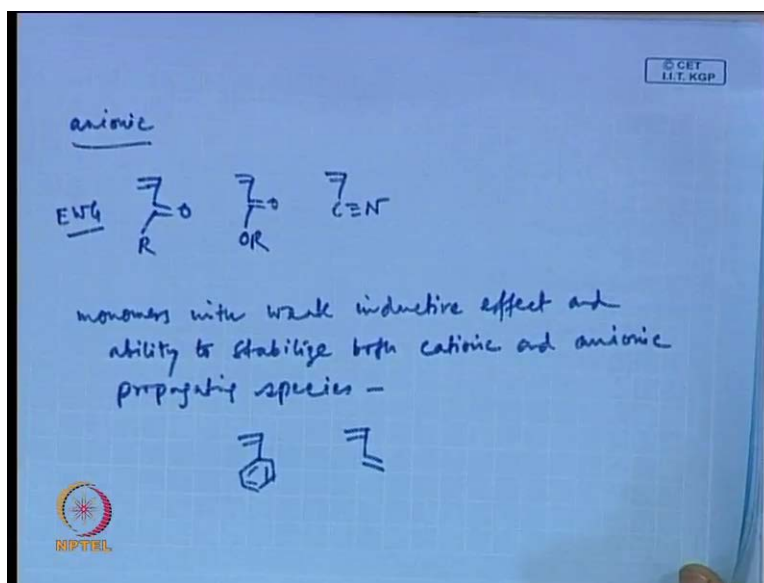 © CET
I.I.T. KGP
anionic
EWG
O O C≡N
R OR
monomers with weak inductive effect and
ability to stabilize both cationic and anionic
propagating species –
NPTEL